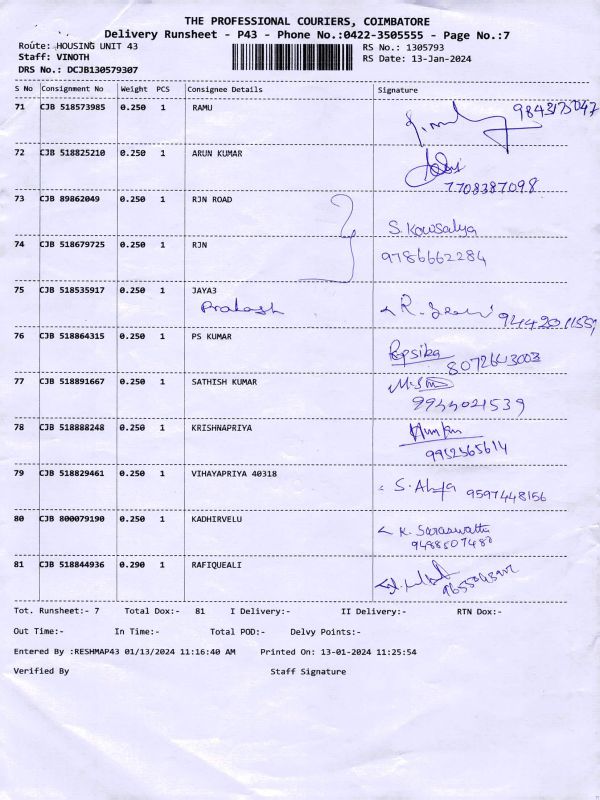 THE PROFESSIONAL COURIERS, COIMBATORE
Delivery Runsheet - P43 - Phone No.:0422-3505555 - Page No.:7
Route: HOUSING UNIT 43 RS No.: 1305793
Staff: VINOTH RS Date: 13-Jan-2024
DRS No.: DCJB130579307
S No Consignment No Weight PCS Consignee Details Signature
71 CJB 518573985 0.250 1 RAMU
72 CJB 518825210 0.250 1 ARUN KUMAR
7708387098
73 CJB 89862049 0.250 1 RJN ROAD
S. Kowsalya
74 CJB 518679725 0.250 1 RJN 9786662284
75 CJB 518535917 0.250 1 JAYA3
Prakash
76 CJB 518864315 0.250 1 PS KUMAR
Pepsika
8072643003
77 CJB 518891667 0.250 1 SATHISH KUMAR
9944021539
78 CJB 518888248 0.250 1 KRISHNAPRIYA
9952565614
79 CJB 518829461 0.250 1 VIHAYAPRIYA 40318
9597448156
80 CJB 800079190 0.250 1 KADHIRVELU
K. Saraswathi
9488507480
81 CJB 518844936 0.290 1 RAFIQUEALI
Tot. Runsheet:- 7 Total Dox:- 81 I Delivery:- II Delivery:- RTN Dox:-
Out Time:- In Time:- Total POD:- Delvy Points:-
Entered By :RESHMAP43 01/13/2024 11:16:40 AM Printed On: 13-01-2024 11:25:54
Verified By Staff Signature